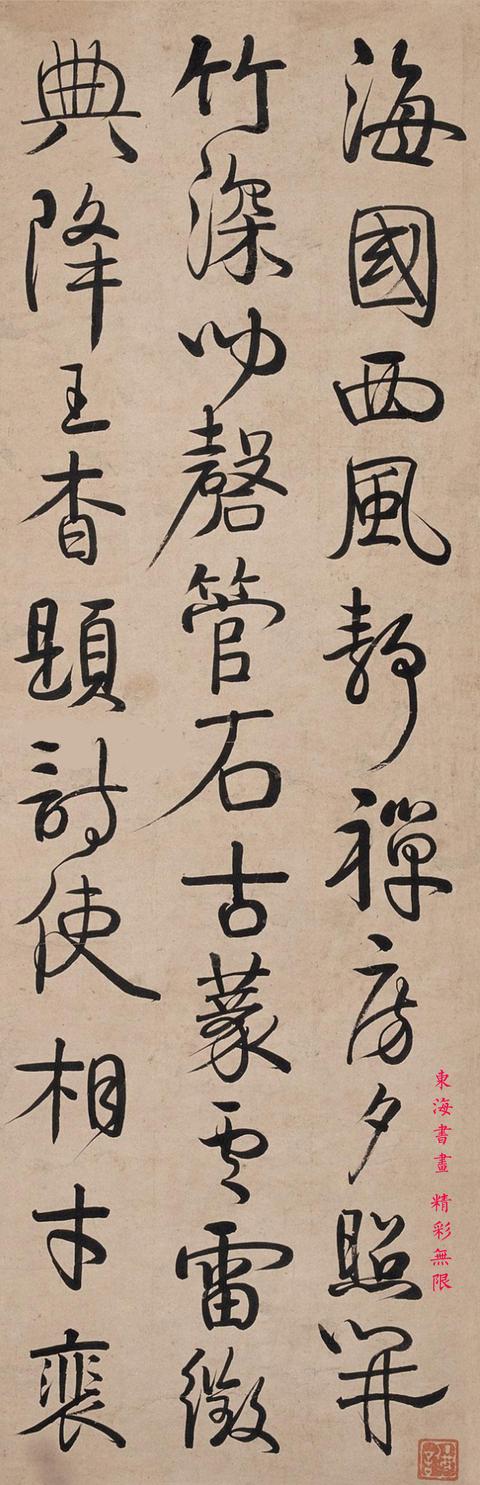 海國西風靜禪房夕照開
竹深磬管石古篆雲雷徵
典降王杳題詩使相才裴
東海書畫 精彩無限